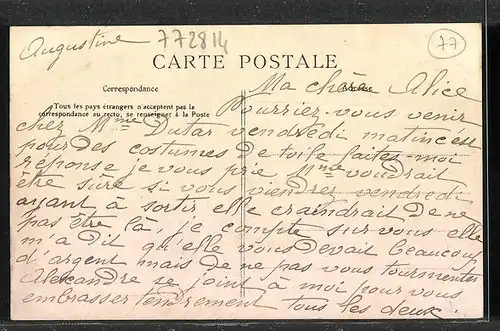 Augustine
772814
77
CARTE POSTALE
Correspondance
Tous les pays étrangers n'acceptent pas la
correspondance au recto, se renseigner à la Poste
Ma chère Alice
Pourriez-vous venir
chez Mme Dutar vendredi matin c'est
pour des costumes de toile faites-moi
réponse je vous prie Mme voudrait
être sûre si vous viendrez vendredi
ayant à sortir elle craindrait de ne
pas être là, je compte sur vous elle
m'a dit qu'elle vous devait beaucoup
d'argent mais de ne pas vous tourmenter
Alexandre se joint à moi pour vous
embrasser tendrement tous les deux.